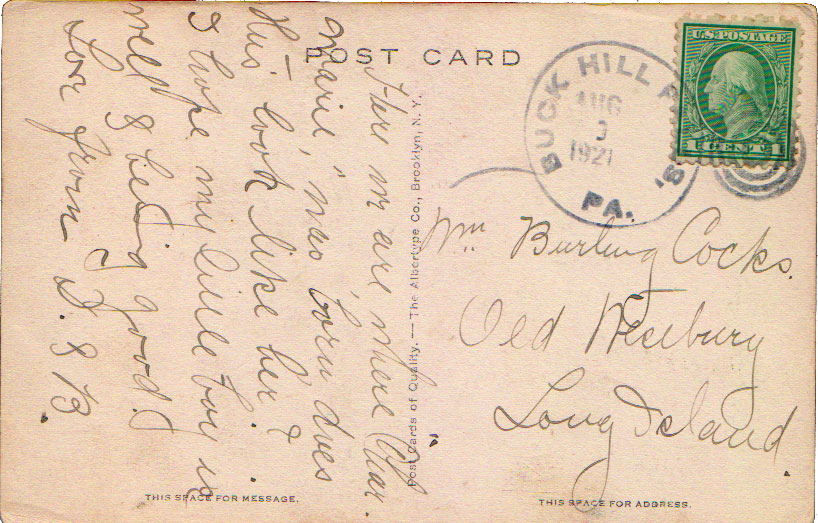 POST CARD
BUCK HILL FALLS
AUG
1921
PA.
U.S. POSTAGE
1 CENT 1
Here we are, where Char.
marie, was born does
this look like her &
I hope my little boy is
well & being good.
Love from D. & B.
Wm Burling Cocks.
Old Westbury
Long Island.
Post Cards of Quality. — The Albertype Co., Brooklyn, N. Y.
THIS SPACE FOR MESSAGE.
THIS SPACE FOR ADDRESS.